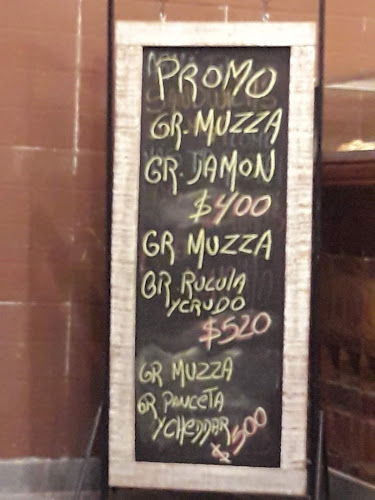 PROMO
GR. MUZZA
GR. JAMON
$400
GR MUZZA
GR RUCULA
Y CRUDO
$520
GR MUZZA
GR PANCETA
Y CHEDDAR
500